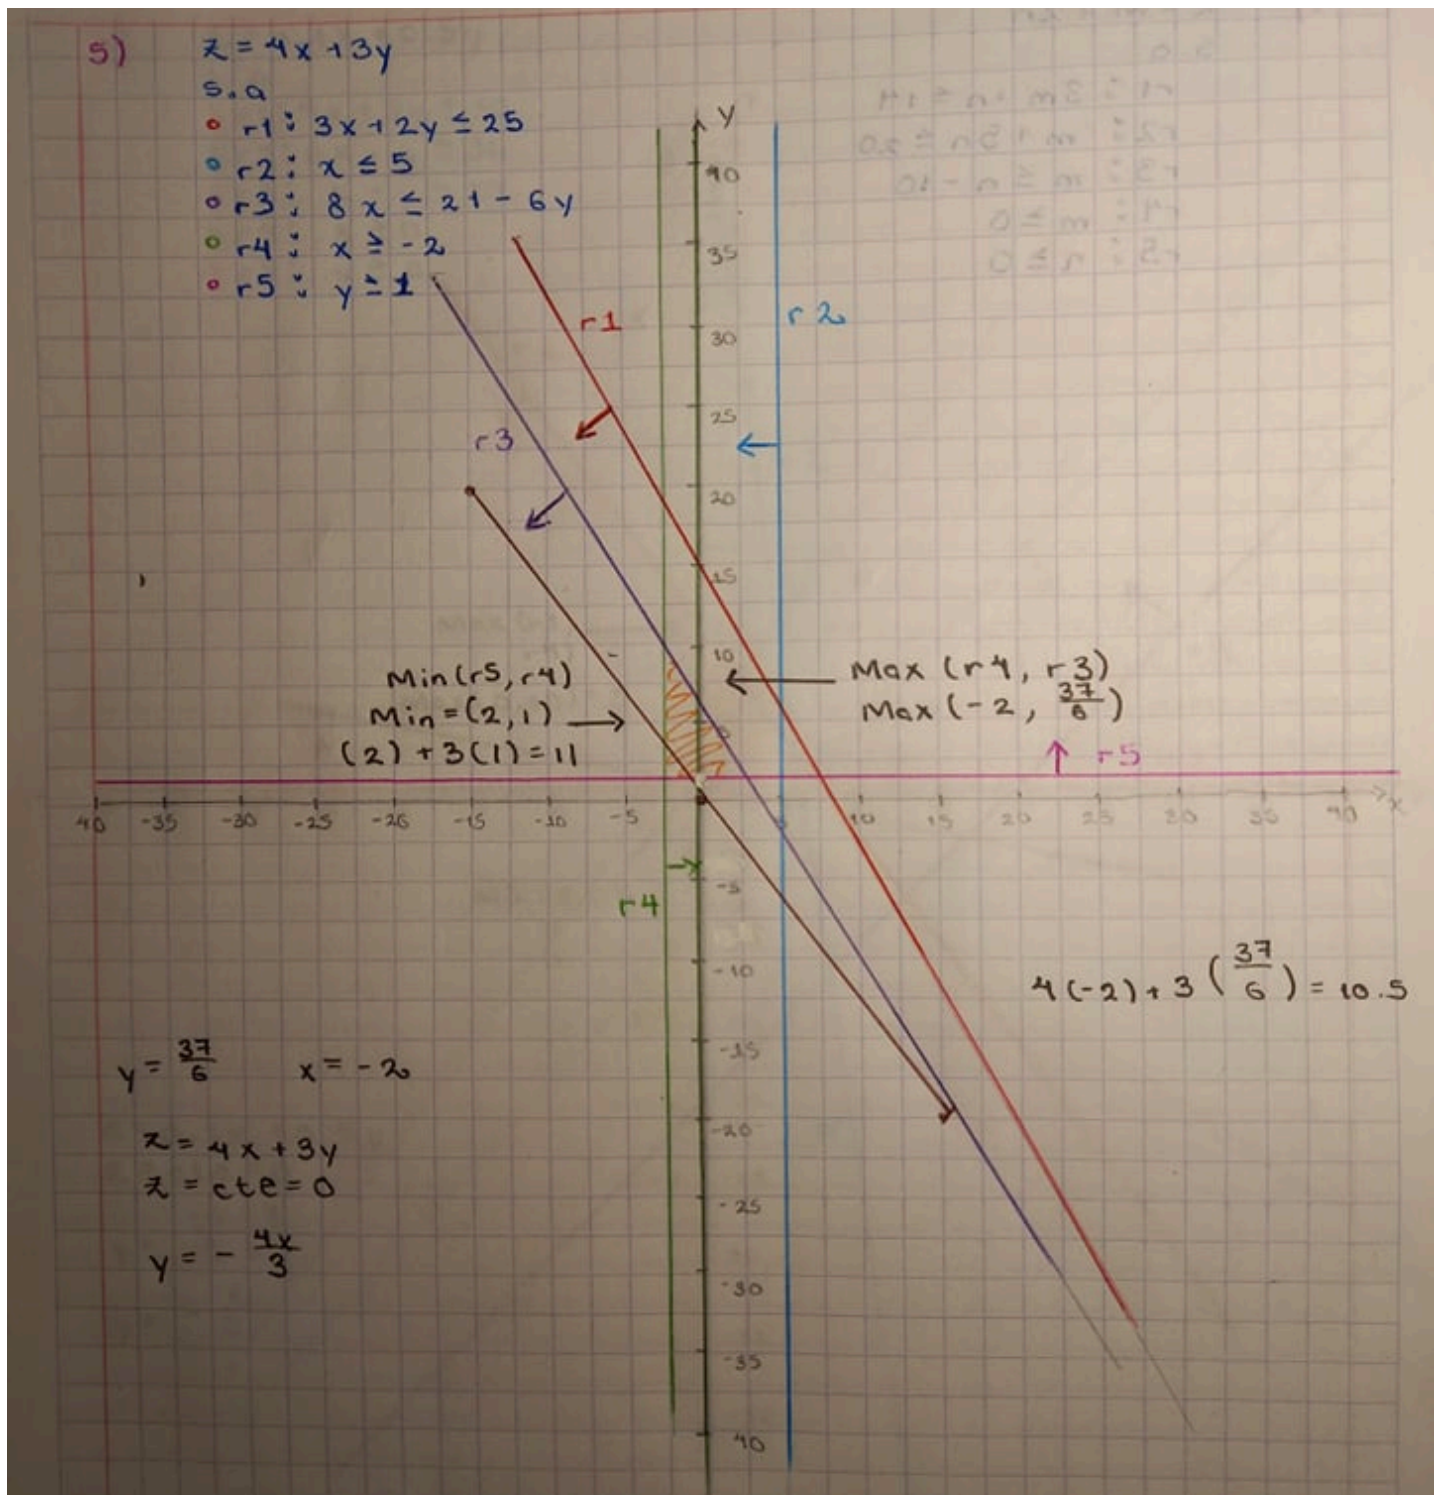 5)
z = 4x + 3y
s.a
r1: 3x + 2y ≤ 25
r2: x ≤ 5
r3: 8x ≤ 21 - 6y
r4: x ≥ -2
r5: y ≥ 1
y
40
35
30
25
20
15
10
r1
r2
r3
Min(r5, r4)
Min = (2, 1)
(2) + 3(1) = 11
Max (r4, r3)
Max (-2, 37/6)
r5
40 -35 -30 -25 -20 -15 -10 -5 10 15 20 25 30 35 40 x
r4
-5
-10
-15
-20
-25
-30
-35
40
4(-2) + 3(37/6) = 10.5
y = 37/6 x = -2
z = 4x + 3y
z = cte = 0
y = - 4x/3